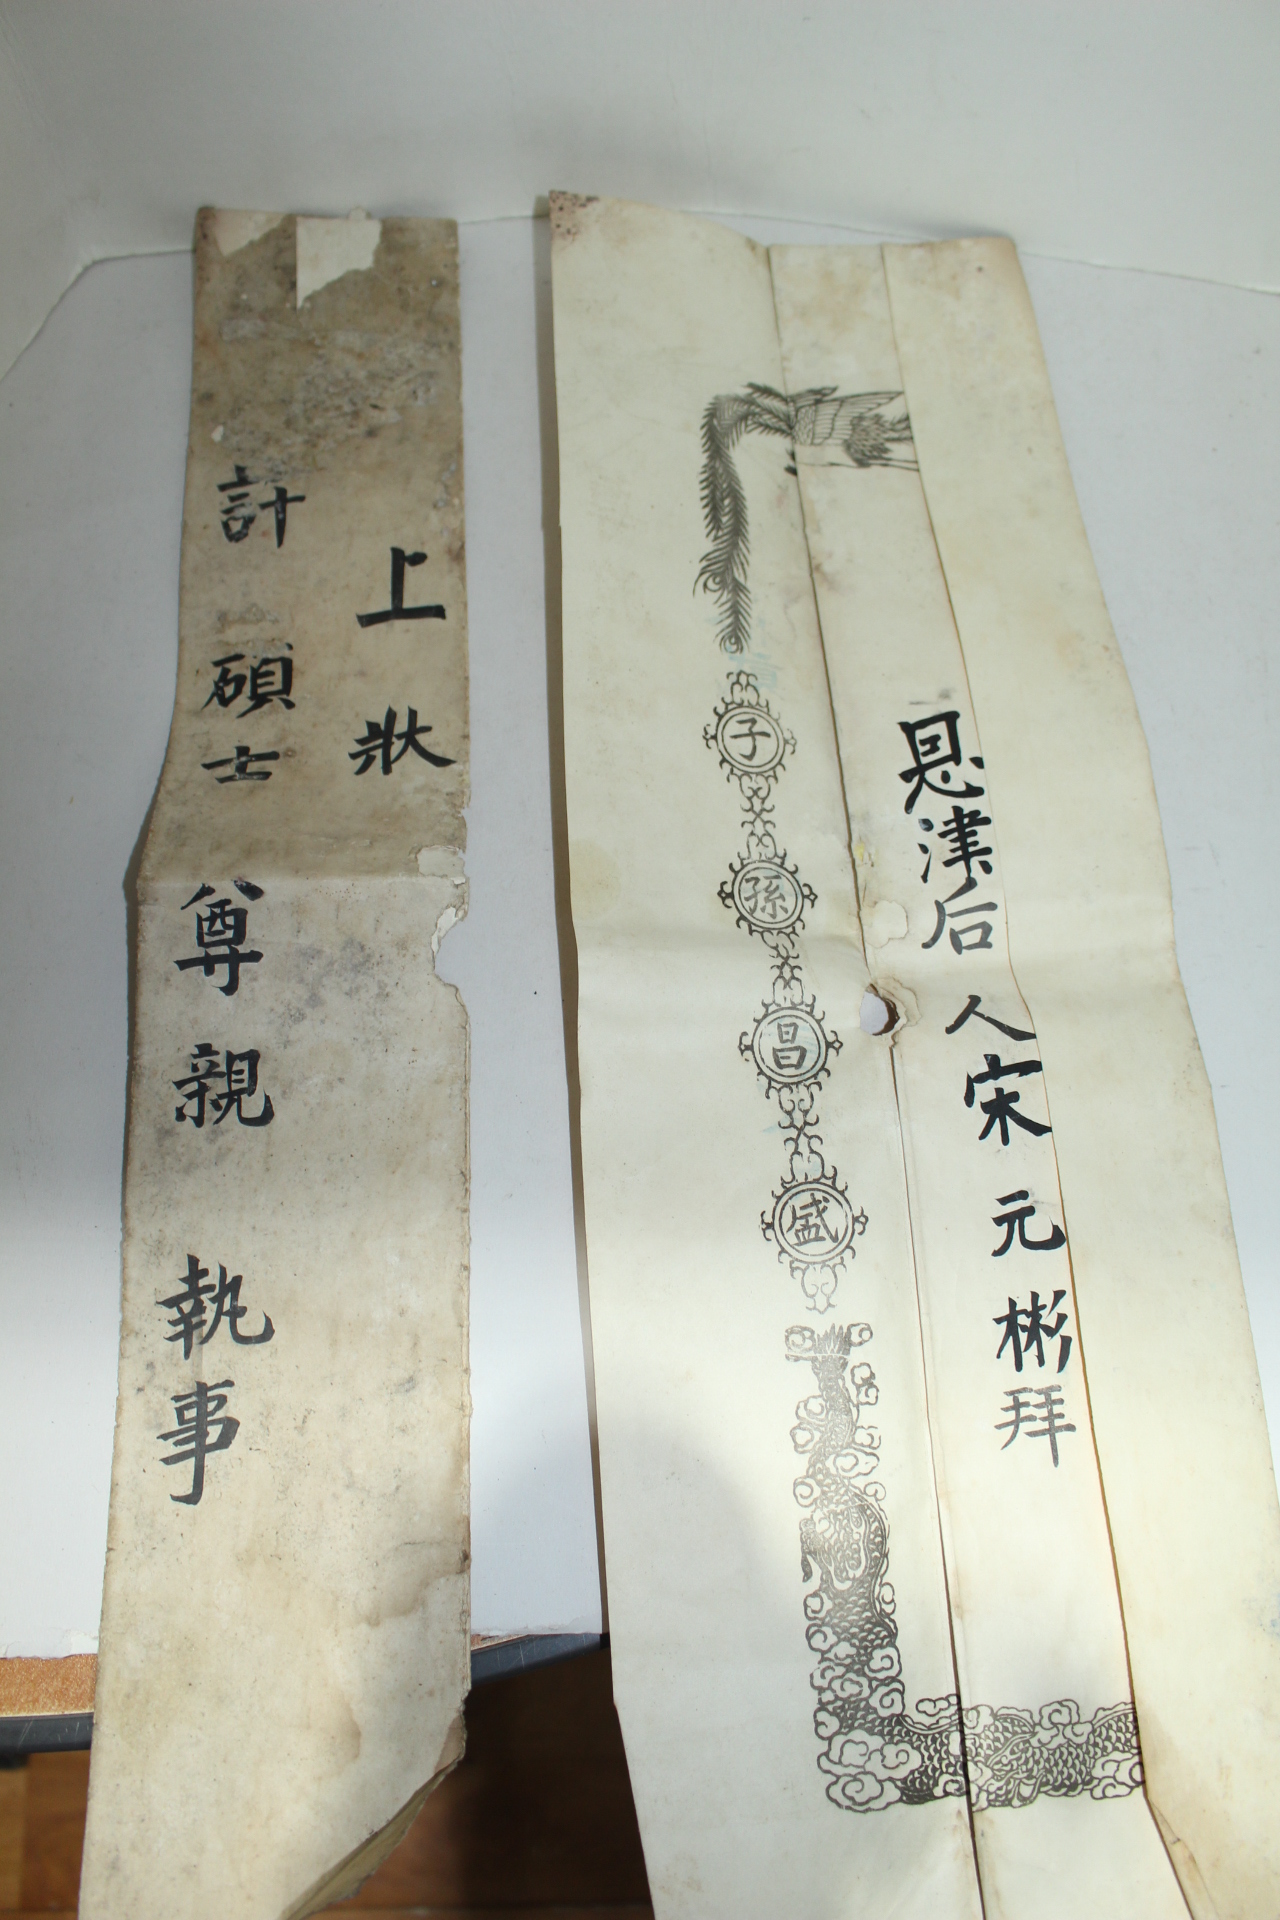 恩津后人宋元彬拜
子孫昌盛
上狀
計碩士尊親執事